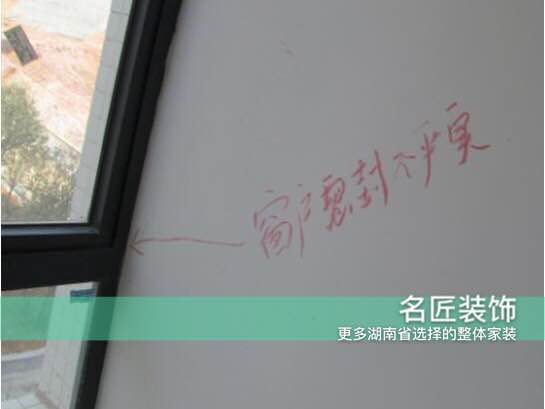 窗户密封不严实
名匠装饰
更多湖南省选择的整体家装